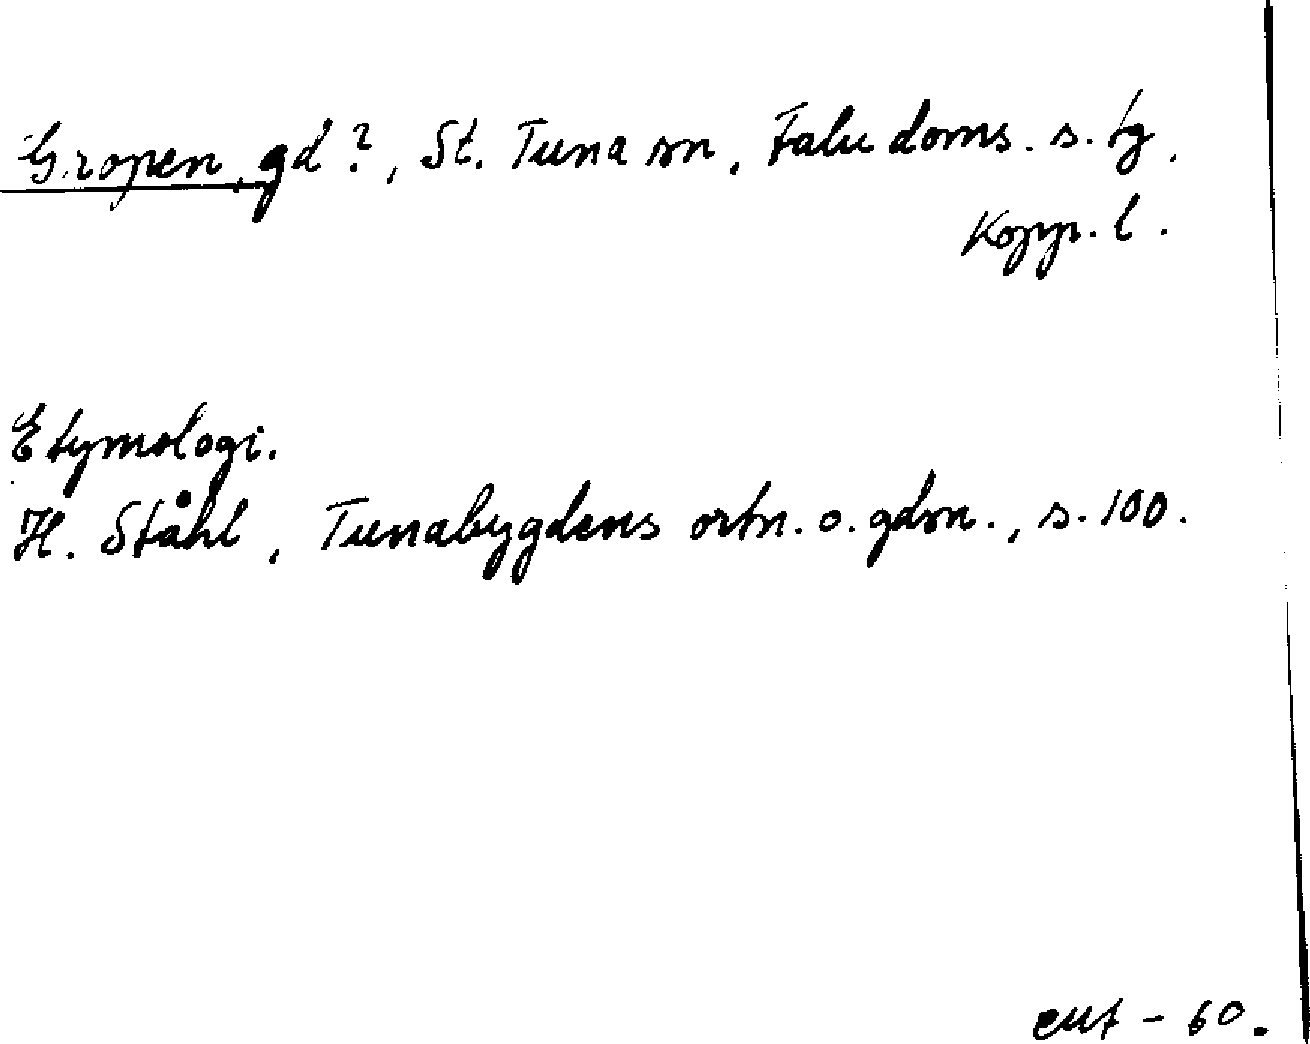 Gropen, gd?, St. Tuna sn, Falu doms. s. tg.
Kopp. l.
Etymologi.
H. Ståhl, Tunabygdens ortn. o. gdsn., s. 100.
- 60.